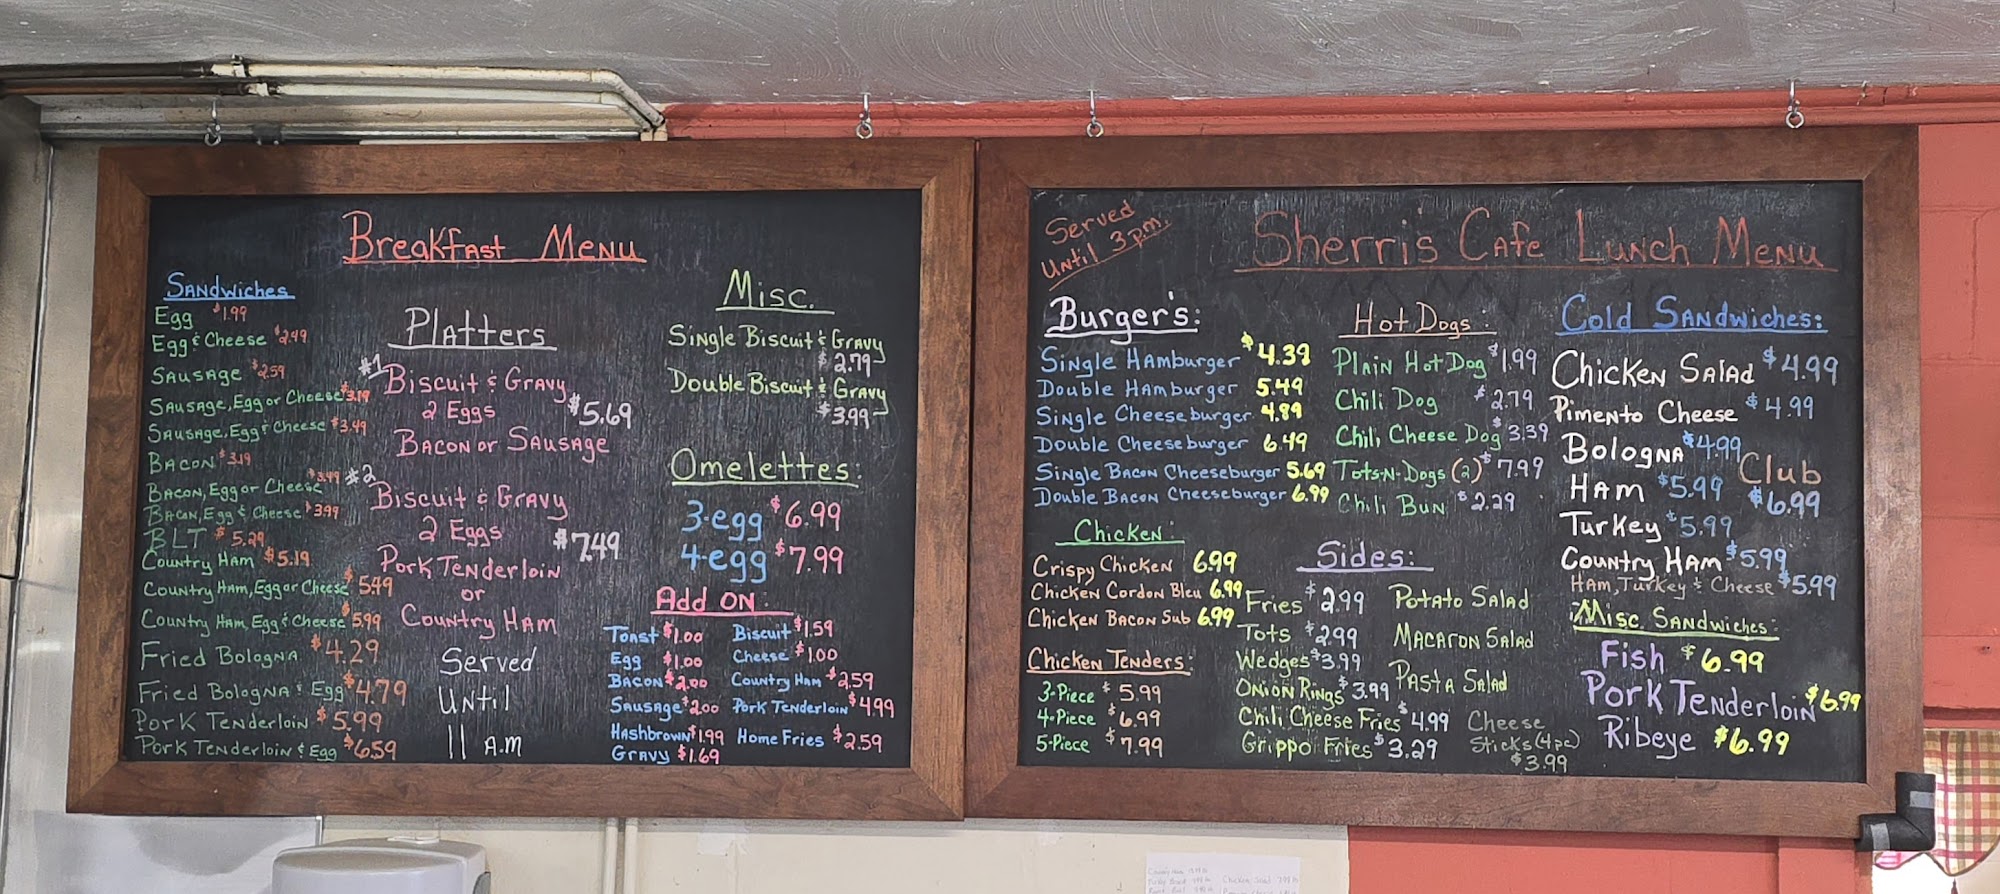 Breakfast Menu
Sandwiches
Egg $1.99
Egg & Cheese $2.49
Sausage $2.59
Sausage, Egg or Cheese $3.19
Sausage, Egg & Cheese $3.49
Bacon $3.19
Bacon, Egg or Cheese $3.49
Bacon, Egg & Cheese $3.99
BLT $5.29
Country Ham $5.19
Country Ham, Egg or Cheese $5.49
Country Ham, Egg & Cheese 5.99
Fried Bologna $4.29
Fried Bologna & Egg $4.79
Pork Tenderloin $5.99
Pork Tenderloin & Egg $6.59
Platters
#1 Biscuit & Gravy
2 Eggs $5.69
Bacon or Sausage
#2
Biscuit & Gravy
2 Eggs $7.49
Pork Tenderloin
or
Country Ham
Served
Until
11 A.M
Misc.
Single Biscuit & Gravy
$2.79
Double Biscuit & Gravy
$3.99
Omelettes:
3-egg $6.99
4-egg $7.99
Add On:
Toast $1.00 Biscuit $1.59
Egg $1.00 Cheese $1.00
Bacon $2.00 Country Ham $2.59
Sausage $2.00 Pork Tenderloin $4.99
Hashbrown $1.99 Home Fries $2.59
Gravy $1.69
Served
Until 3 p.m.
Sherri's Cafe Lunch Menu
Burger's:
Single Hamburger $4.39
Double Hamburger 5.49
Single Cheeseburger 4.89
Double Cheeseburger 6.49
Single Bacon Cheeseburger 5.69
Double Bacon Cheeseburger 6.99
Chicken:
Crispy Chicken 6.99
Chicken Cordon Bleu 6.99
Chicken Bacon Sub 6.99
Chicken Tenders:
3-Piece $5.99
4-Piece $6.99
5-Piece $7.99
Hot Dogs:
Plain Hot Dog $1.99
Chili Dog $2.79
Chili Cheese Dog $3.39
Tots-N-Dogs (2) $7.99
Chili Bun $2.29
Sides:
Fries $2.99 Potato Salad
Tots $2.99 Macaron Salad
Wedges $3.99 Pasta Salad
Onion Rings $3.99
Chili Cheese Fries $4.99
Grippo Fries $3.29
Cheese
Sticks (4pc)
$3.99
Cold Sandwiches:
Chicken Salad $4.99
Pimento Cheese $4.99
Bologna $4.99
Ham $5.99
Club
$6.99
Turkey $5.99
Country Ham $5.99
Ham, Turkey & Cheese $5.99
Misc. Sandwiches:
Fish $6.99
Pork Tenderloin $6.99
Ribeye $6.99